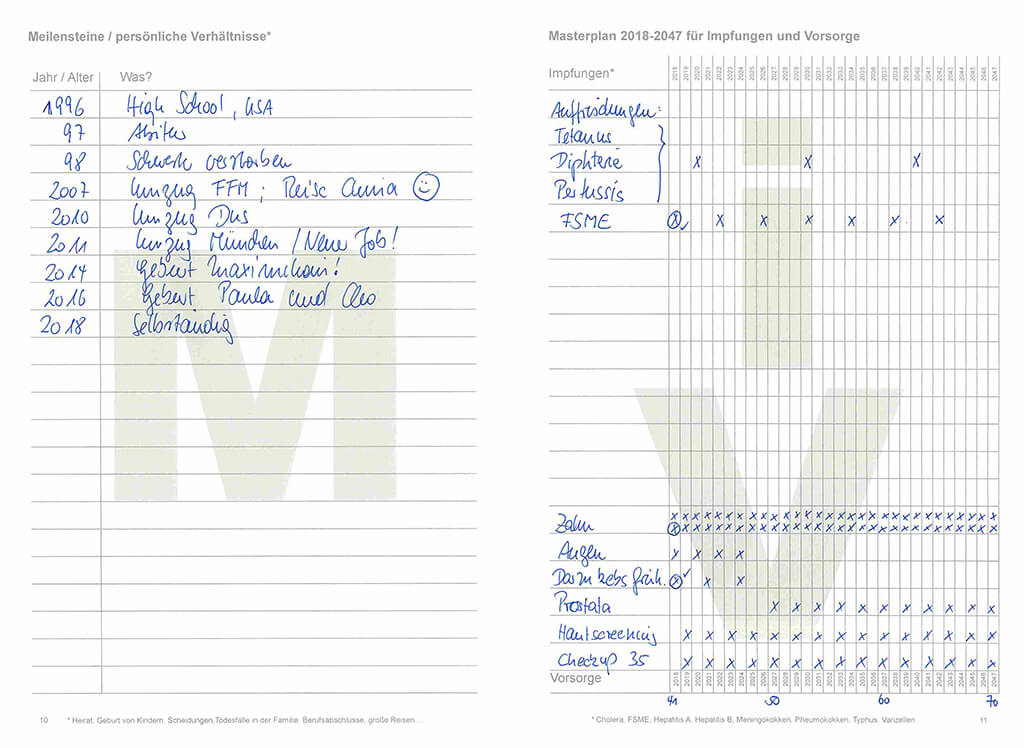 Meilensteine / persönliche Verhältnisse*
Jahr / Alter Was?
1996 High School, USA
97 Abitur
98 Schwerk verstorben
2007 Umzug FFM ; Reise
2010 Umzug Dus
2011 Umzug München / Neuer Job!
2014 Geburt Maximilian!
2016 Geburt Paula und Cleo
2018 Selbständig
10 * Heirat, Geburt von Kindern, Scheidungen, Todesfälle in der Familie, Berufsabschlüsse, große Reisen ...
Masterplan 2018-2047 für Impfungen und Vorsorge
Impfungen* 2018 2019 2020 2021 2022 2023 2024 2025 2026 2027 2028 2029 2030 2031 2032 2033 2034 2035 2036 2037 2038 2039 2040 2041 2042 2043 2044 2045 2046 2047
Auffrischungen:
Tetanus
Diphterie x x x
Pertussis
FSME x x x x x x x
x x x x x x x x x x x x x x x x x x x x x x x x x x x x x x
Zahn x x x x x x x x x x x x x x x x x x x x x x x x x x x x x x
Augen x x x x
Darmkrebs früh. x x x
Prostata x x x x x x x x x x x
Hautscreening x x x x x x x x x x x x x x x
Checkup 35 x x x x x x x x x x x x x x x
Vorsorge 2018 2019 2020 2021 2022 2023 2024 2025 2026 2027 2028 2029 2030 2031 2032 2033 2034 2035 2036 2037 2038 2039 2040 2041 2042 2043 2044 2045 2046 2047
41 50 60 70
* Cholera, FSME, Hepatitis A, Hepatitis B, Meningokokken, Pneumokokken, Typhus, Varizellen 11
M
i
V